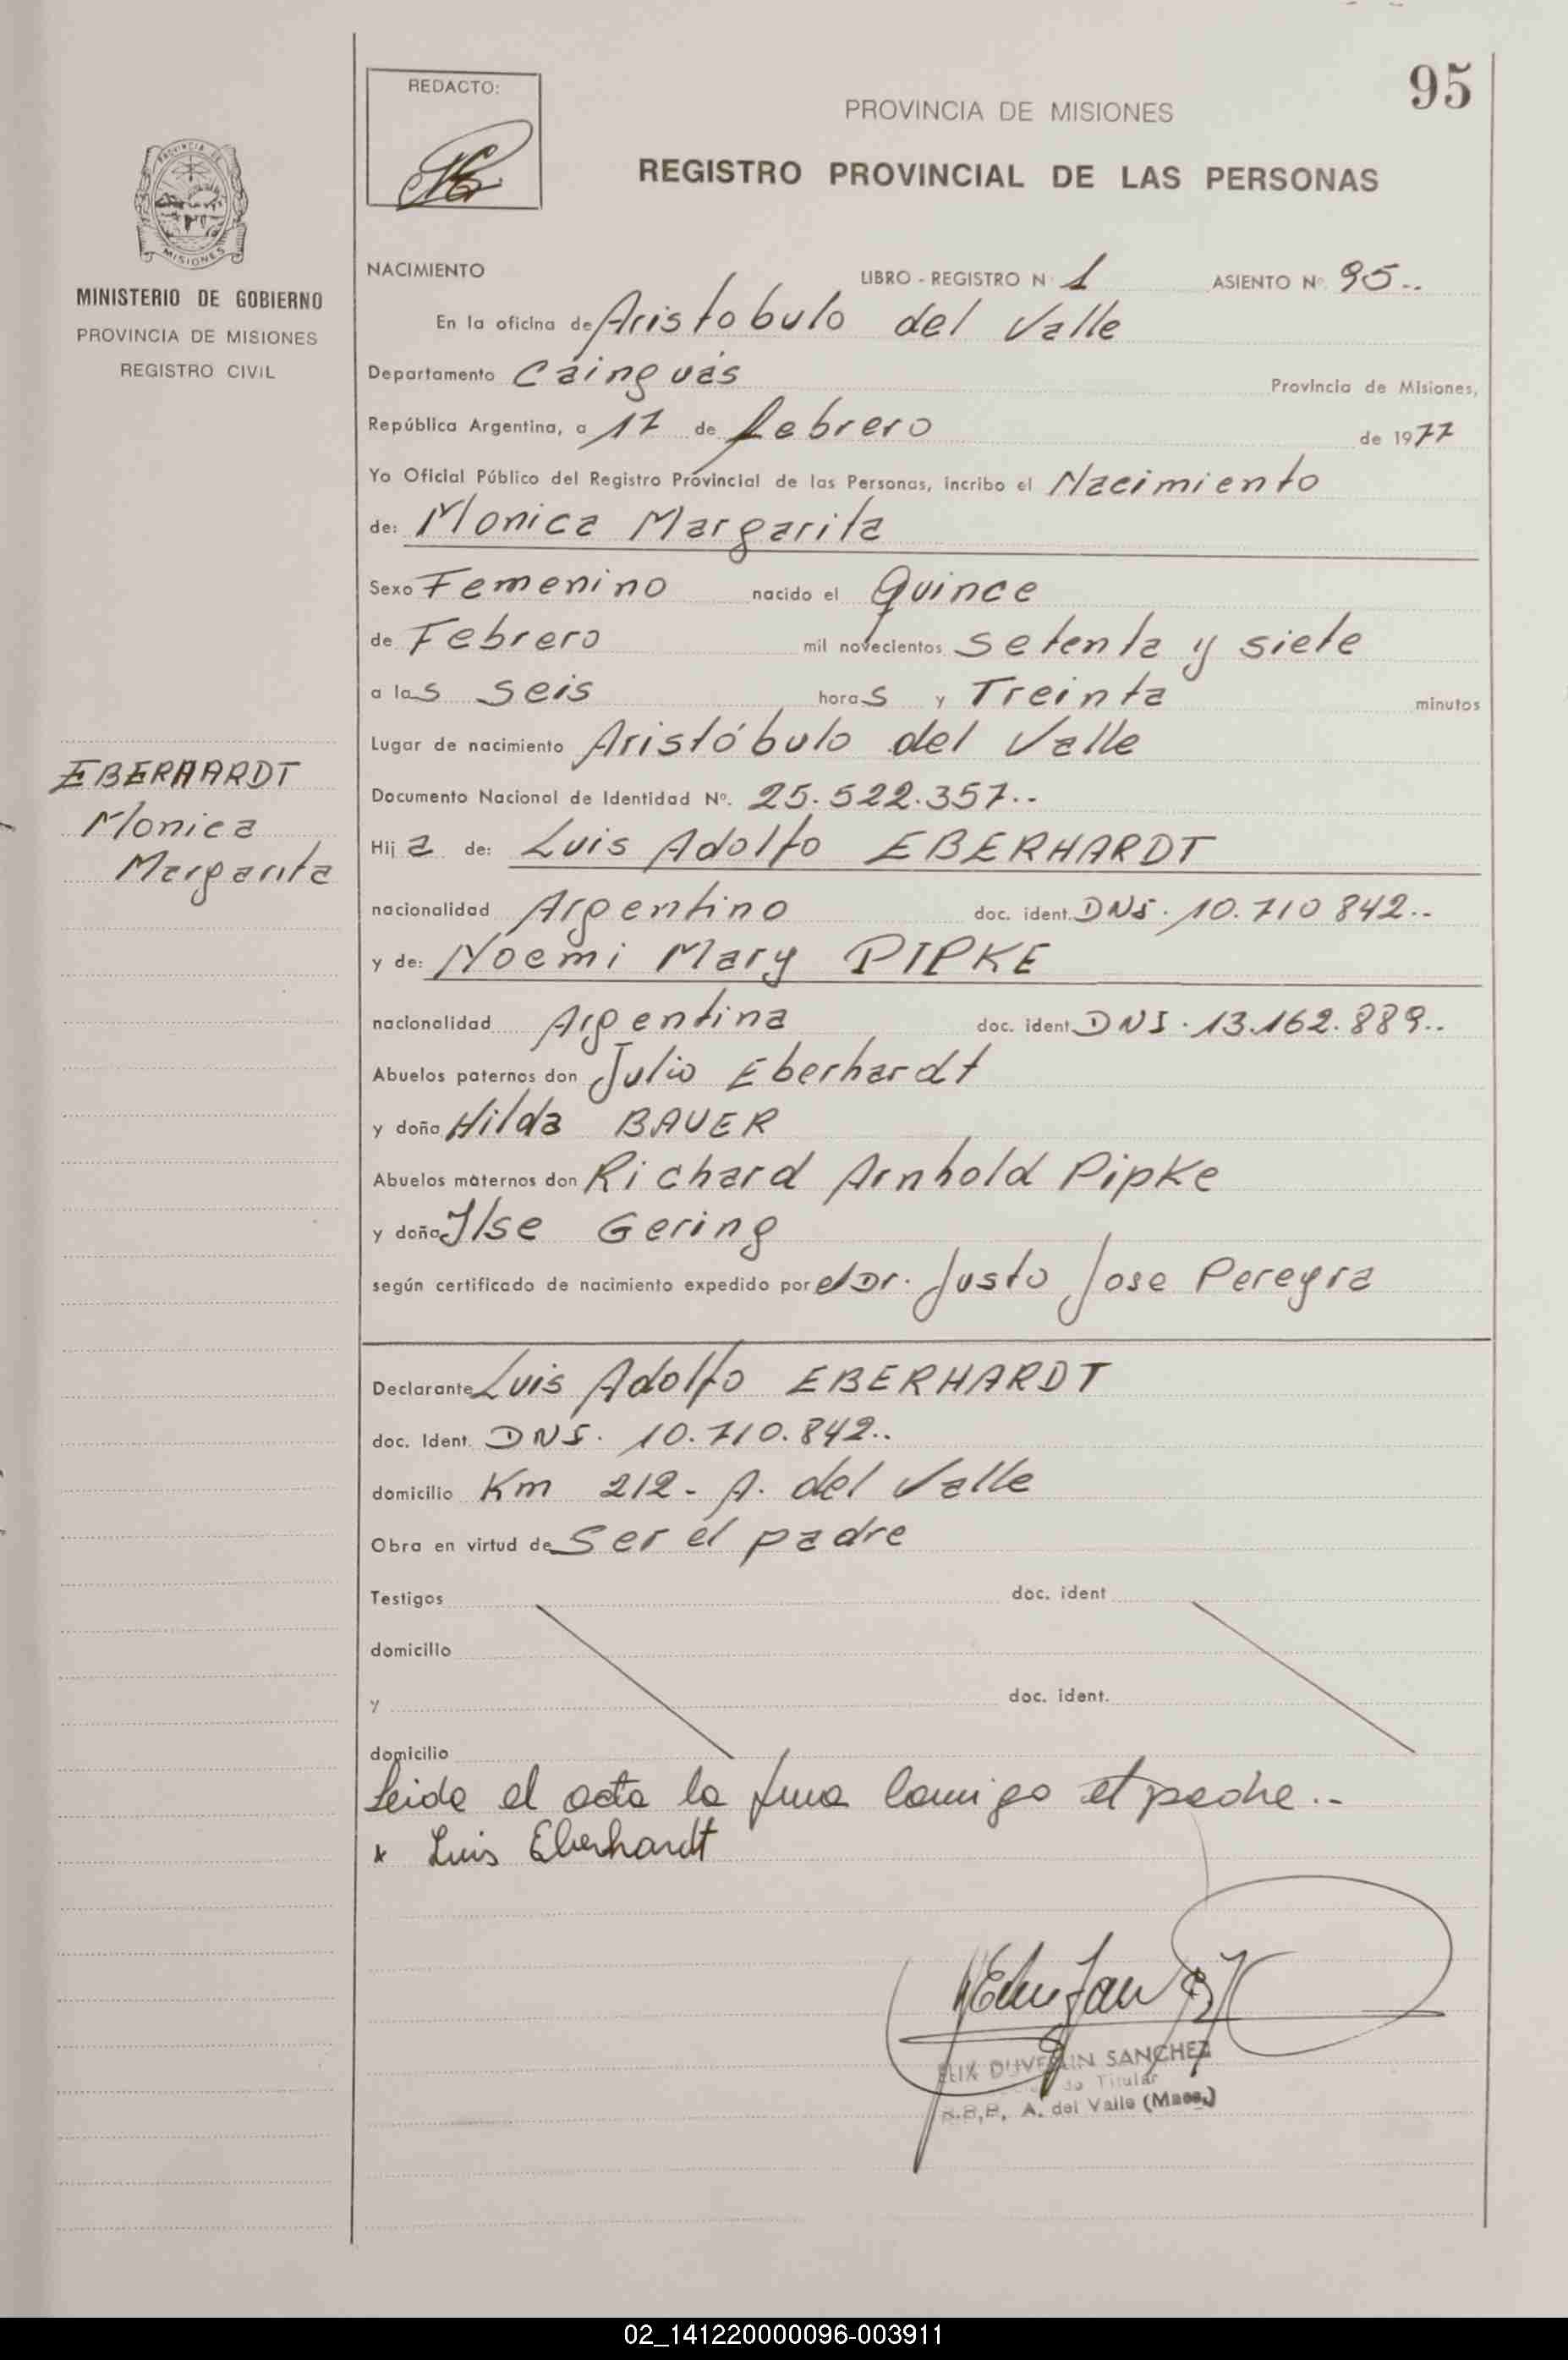 95
REDACTO:
PROVINCIA DE MISIONES
REGISTRO PROVINCIAL DE LAS PERSONAS
PROVINCIA DE
MISIONES
MINISTERIO DE GOBIERNO
PROVINCIA DE MISIONES
REGISTRO CIVIL
EBERHARDT
Monica
Margarita
NACIMIENTO LIBRO - REGISTRO N 1 ASIENTO Nº 95..
En la oficina de Aristobulo del Valle
Departamento Cainguás Provincia de Misiones,
República Argentina, a 17 de febrero de 1977
Yo Oficial Público del Registro Provincial de las Personas, incribo el Nacimiento
de: Monica Margarita
Sexo Femenino nacido el Quince
de Febrero mil novecientos setenta y siete
a las seis horas y Treinta minutos
Lugar de nacimiento Aristóbulo del Valle
Documento Nacional de Identidad Nº. 25.522.357..
Hija de: Luis Adolfo EBERHARDT
nacionalidad Argentino doc. ident. DNI. 10.710 842..
y de: Noemi Mary PIPKE
nacionalidad Argentina doc. ident DNI. 13.162.889..
Abuelos paternos don Julio Eberhardt
y doña Hilda BAUER
Abuelos maternos don Richard Arnhold Pipke
y doña Ilse Gering
según certificado de nacimiento expedido por el Dr. Justo Jose Pereyra
Declarante Luis Adolfo EBERHARDT
doc. Ident. DNI. 10.710.842..
domicilio Km 212- A. del Valle
Obra en virtud de Ser el padre
Testigos doc. ident
domicilio
y doc. ident.
domicilio
Leida el acta la firma conmigo el padre..
Luis Eberhardt
SANCHEZ
Titular
A. del Valle (Mnes.)
02_141220000096-003911